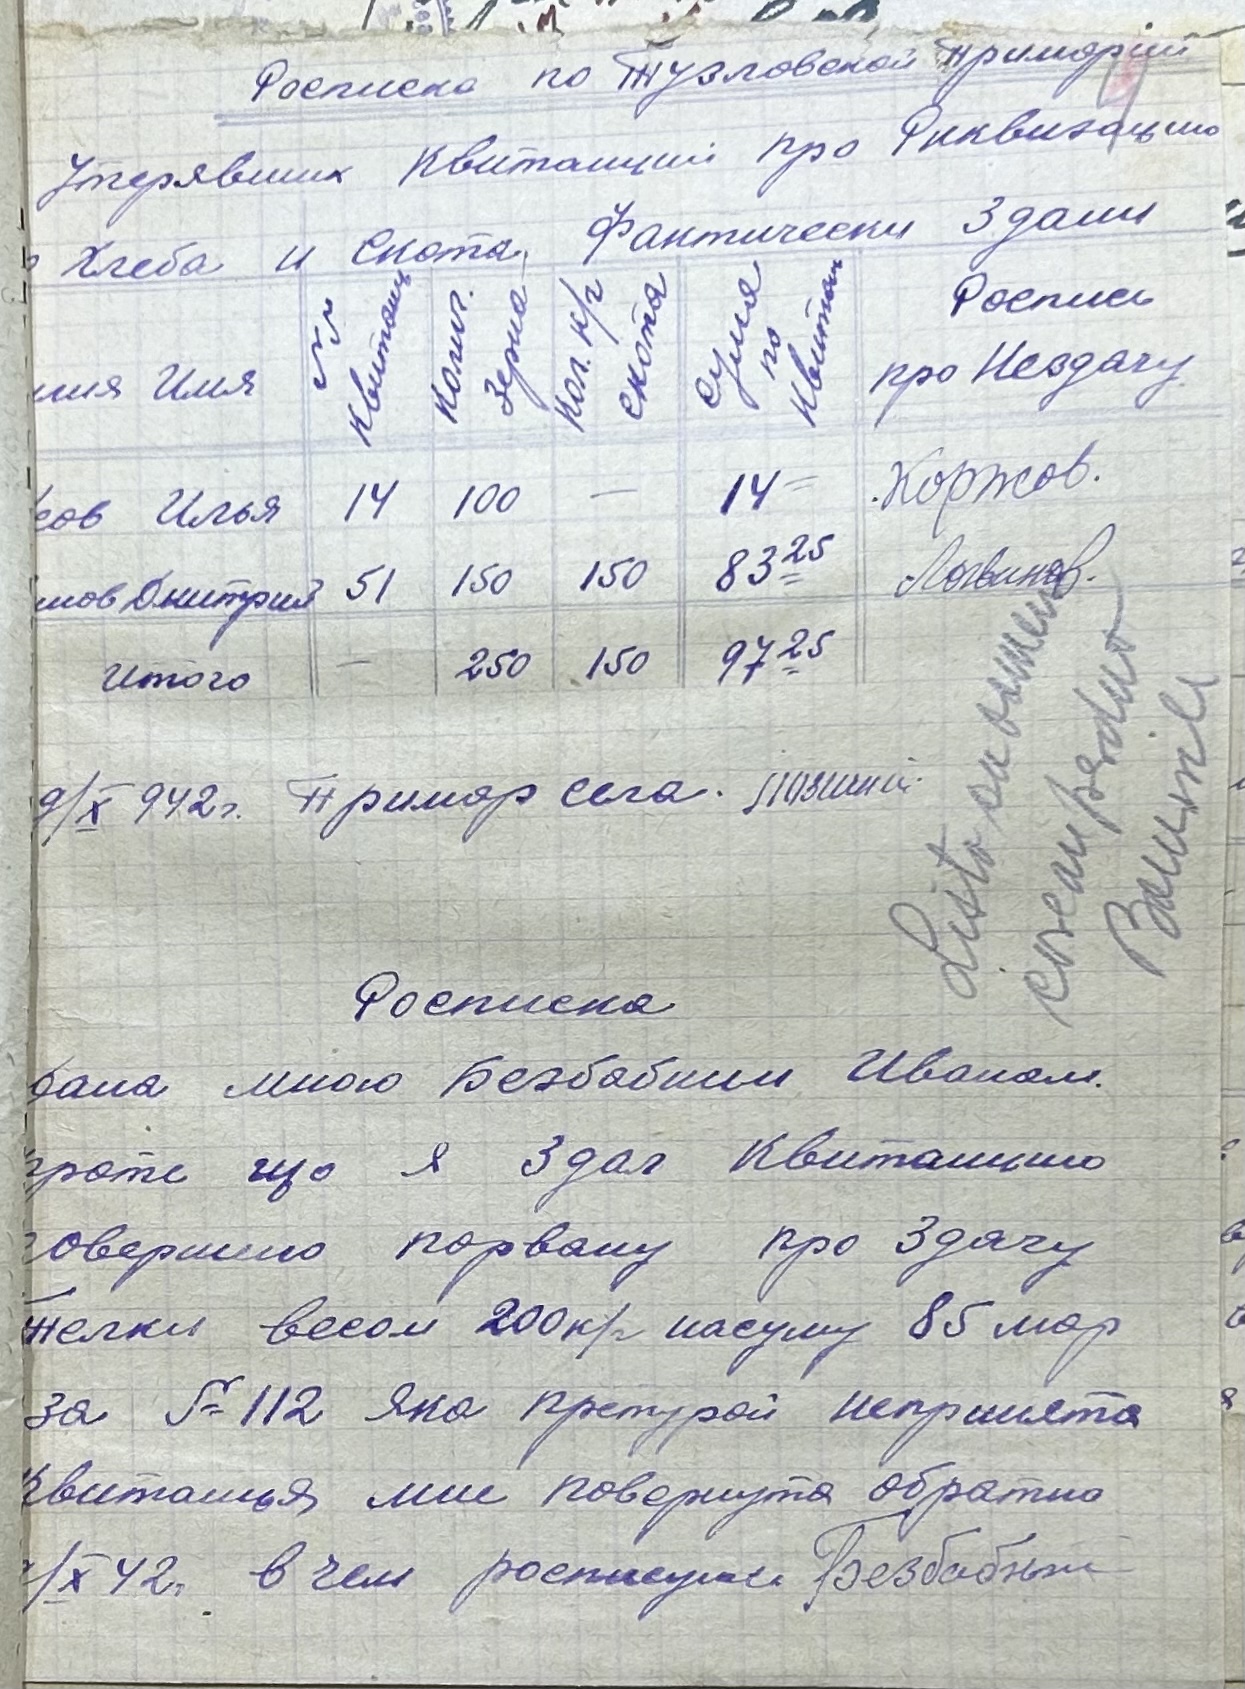 Росписка по Тузловской Примарии
Утерявших Квитанций про Риквизацию
Хлеба и Скота, Фактически Здали
мия Имя | №№ квитанц | Колич. Зерна | Кол. к/г скота | Сума по Квитанц | Роспись про Нездачу
ков Илья | 14 | 100 | — | 14= | Коржов.
нов Дмитрий | 51 | 150 | 150 | 83 25 | Логвинов.
Итого | — | 250 | 150 | 97 25
9/X 942г. Примар села.
Росписка
дана мною Безбабним Иваном.
проте що я Здал Квитанцию
совершно порвану про Здачу
Телки весом 200 к/г насуму 85 мар
за № 112 яка претурой неприията
Квитанцья мне повернута обратно
/X 42г. в чем росписуюсь Безбабный